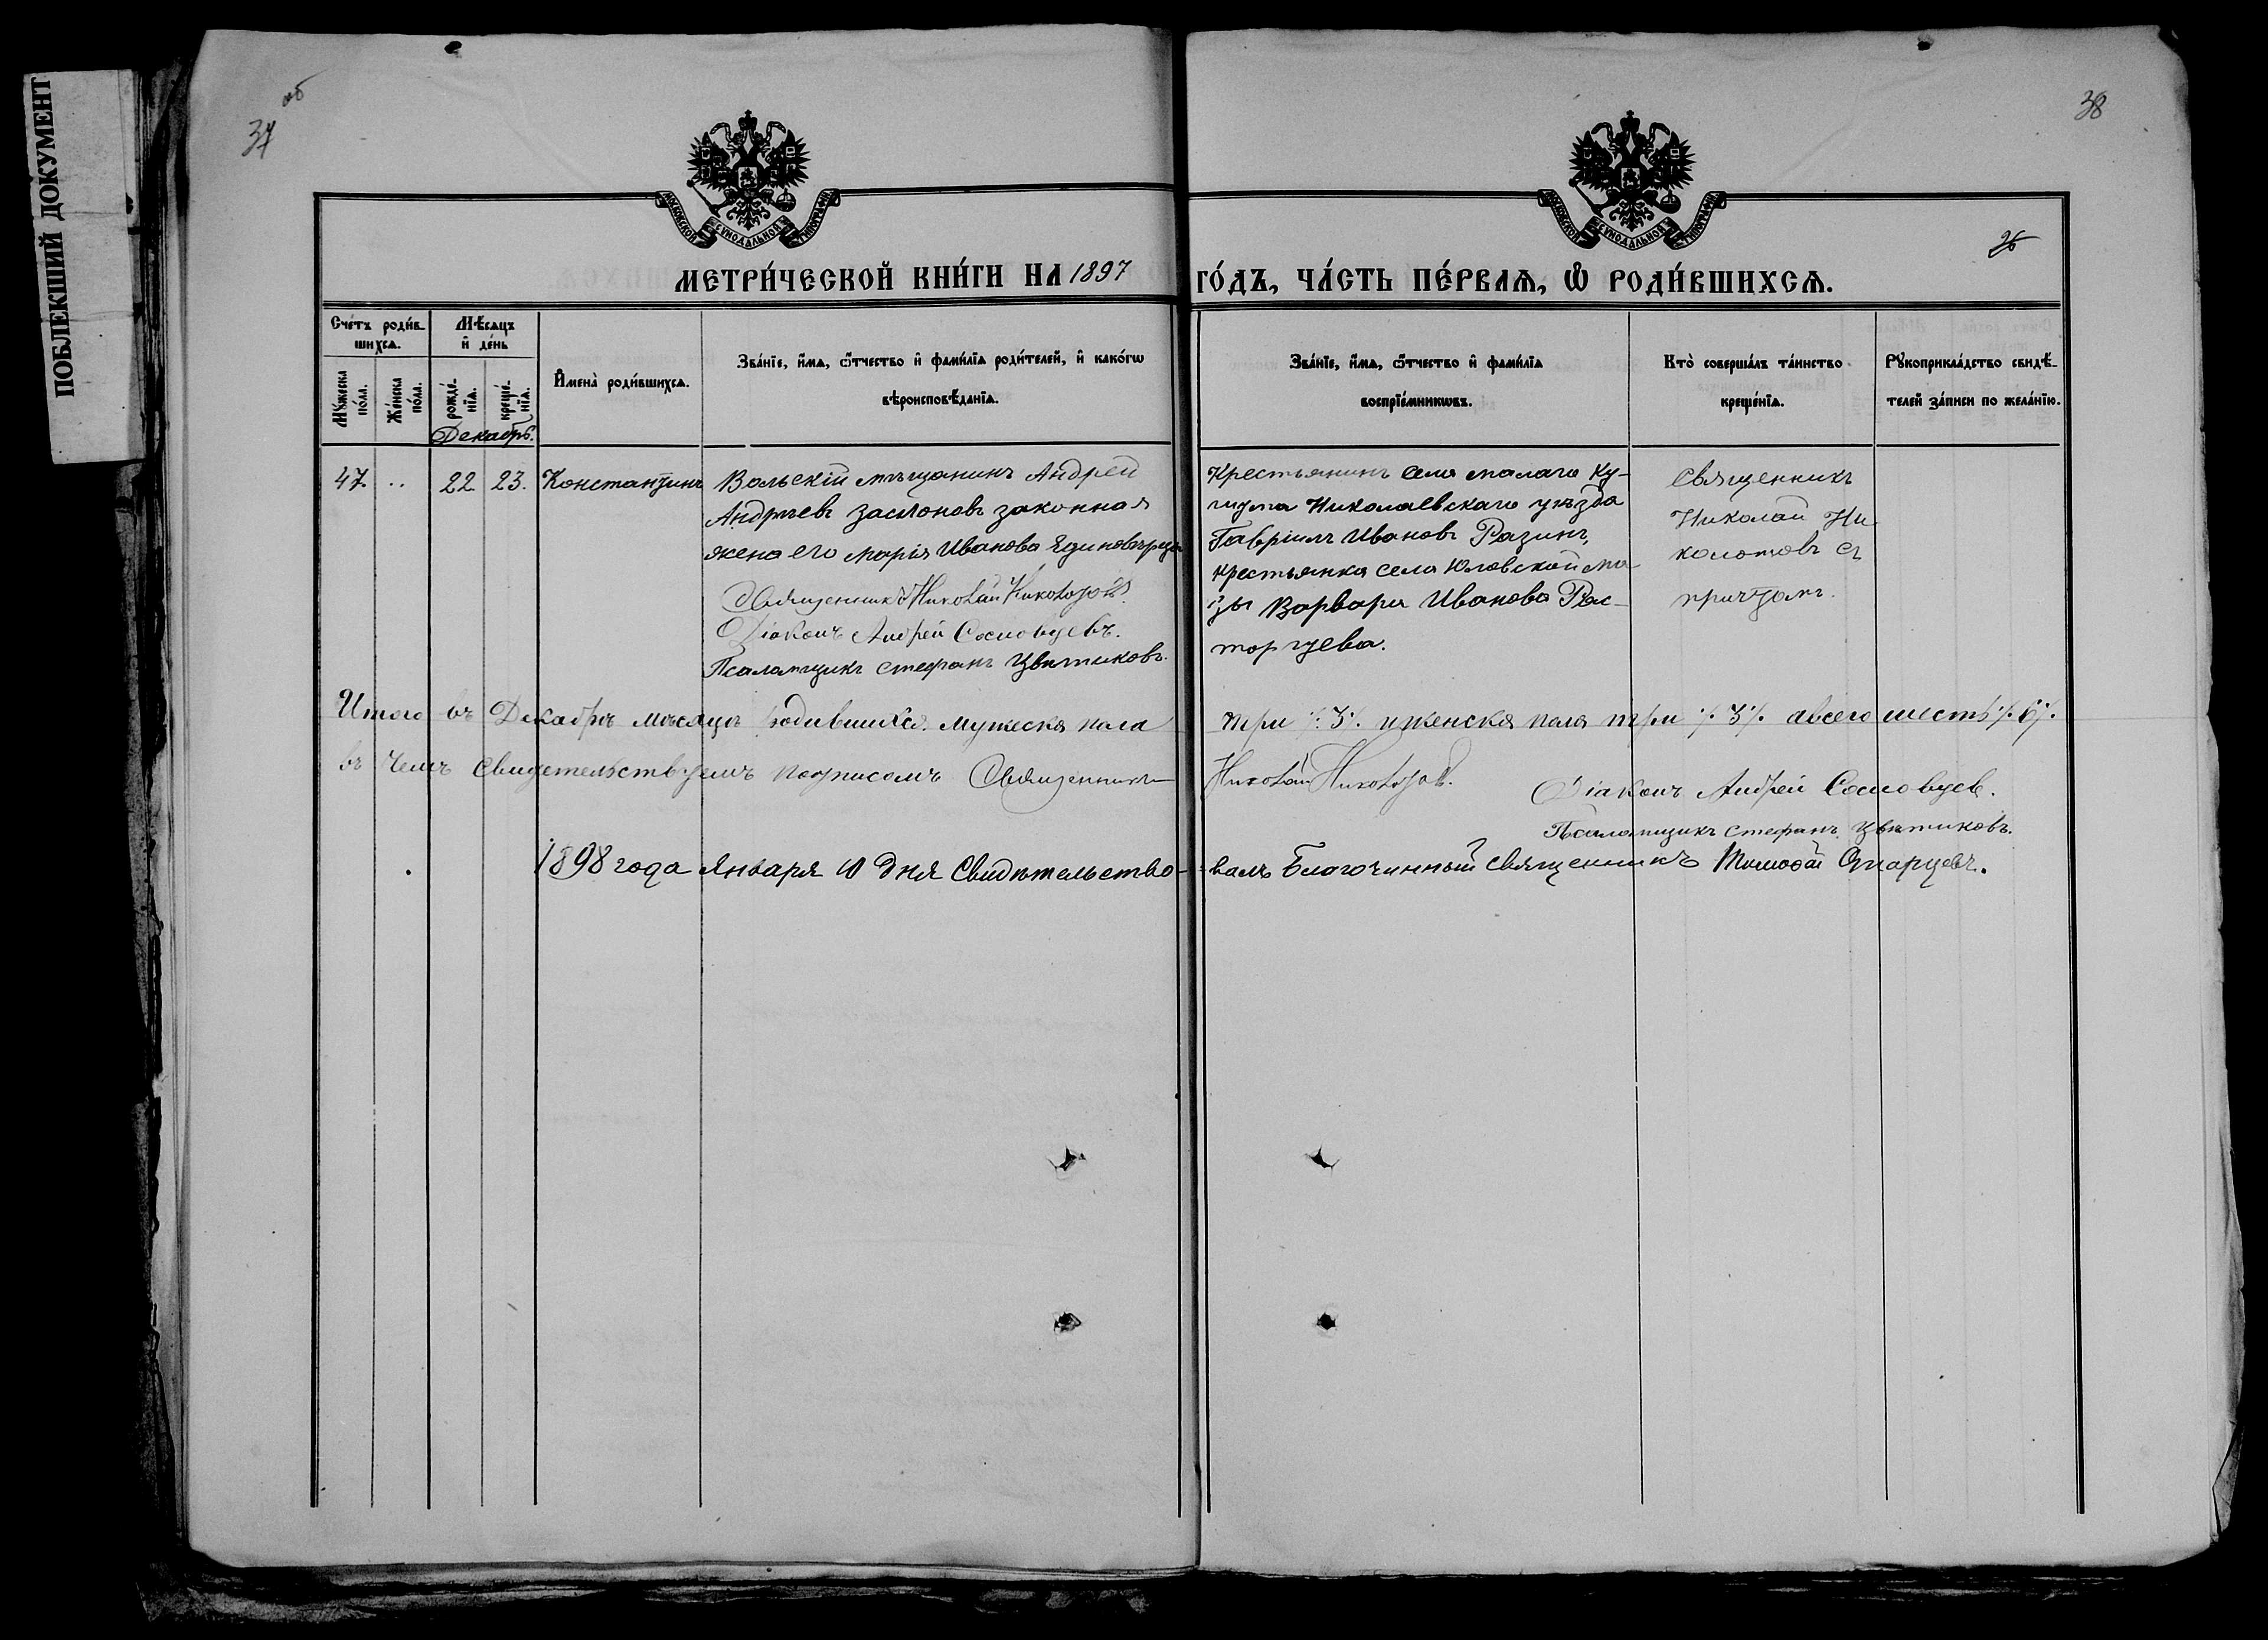 ПОБЛЕКШИЙ ДОКУМЕНТ
об
37
38
МОСКОВСКОЙ СѴНОДАЛЬНОЙ ТИПОГРАФІИ
МОСКОВСКОЙ СѴНОДАЛЬНОЙ ТИПОГРАФІИ
26
МЕТРИ́ЧЕСКОЙ КНИ́ГИ НА 1897
ГО́ДЪ, ЧА́СТЬ ПЕ́РВАѦ, Ѡ РОДИ́ВШИХСѦ.
Сче́тъ роди́в-
шихсѧ.
Мѣ́сѧцъ
и де́нь
Мꙋ́жеска
по́ла.
Же́нска
по́ла.
рожде́-
нїѧ.
креще́-
нїѧ.
Имена̀ роди́вшихсѧ.
Зва́нїе, и́мѧ, ѻ́тчество и фами́лїѧ роди́телей, и како́гѡ
вѣроисповѣ́данїѧ.
Зва́нїе, и́мѧ, ѻ́тчество и фами́лїѧ
воспрїе́мникѡвъ.
Кто̀ соверша́лъ та́инство
креще́нїѧ.
Рꙋкоприкла́дство свидѣ́-
телей за́писи по жела́нїю.
Декабрь.
47. .. 22 23. Константинъ
Вольскій мѣщанинъ Андрей
Андреевъ Заслоновъ законная
жена его Марія Иванова Единовѣрцы
Священникъ Николай Николотовъ
Діаконъ Андрей Сосновцевъ.
Псаломщикъ Стефанъ Цвѣтиковъ.
Крестьянинъ села Малаго Ку-
шума Николаевскаго уѣзда
Гавріилъ Ивановъ Разинъ,
крестьянка села Юловской Ма-
зы Варвара Иванова Рас-
торгуева.
Священникъ
Николай Ни-
колотовъ съ
причтомъ.
Итого въ Декабрѣ мѣсяцѣ родившихся мужеска пола три ·/. 3 ·/. и женска пола три ·/. 3 ·/. а всего шесть ·/. 6 ·/.
въ чемъ свидетельствуемъ подписомъ Священникъ Николай Николотовъ.
Діаконъ Андрей Сосновцев.
Псаломщикъ Стефанъ Цвѣтиковъ.
1898 года Января 10 дня Свидѣтельство-валъ Благочинный Священникъ